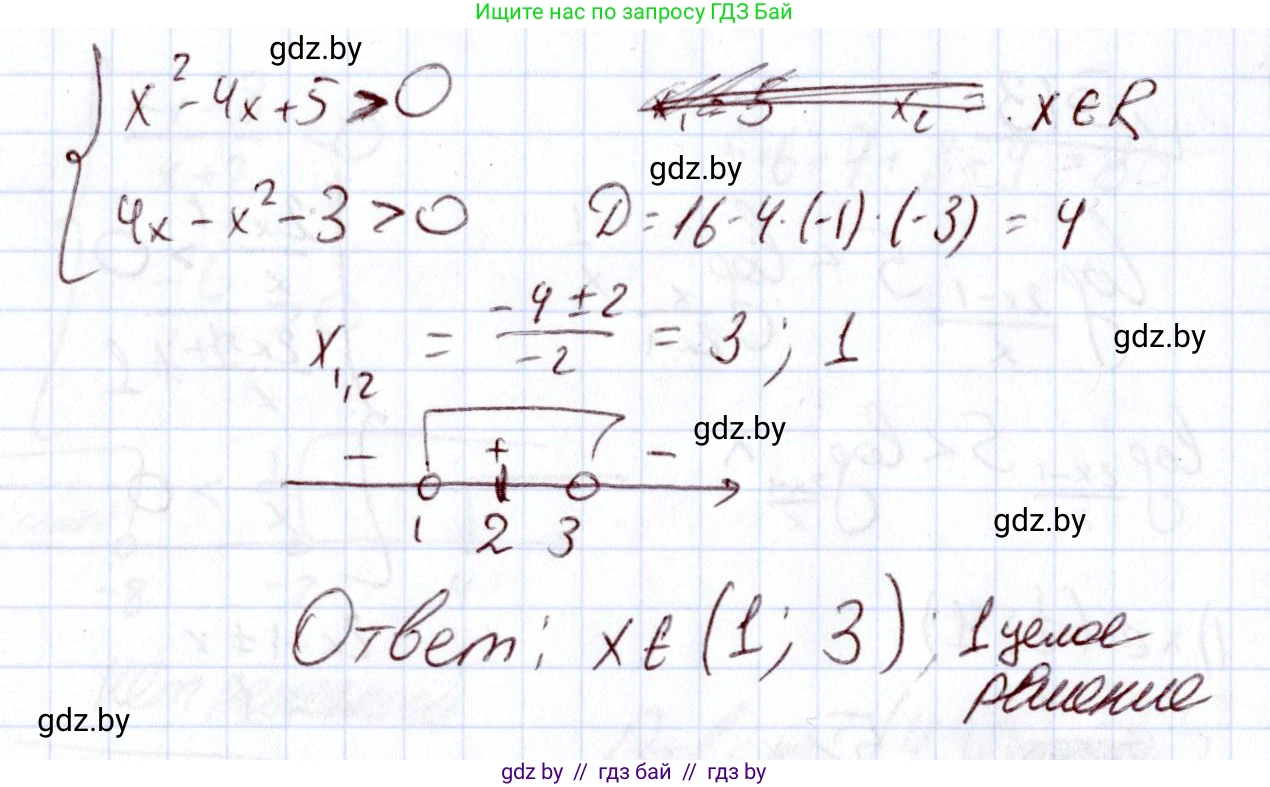 Ищите нас по запросу ГДЗ Бай
gdz.by
x² - 4x + 5 > 0 x ∈ R
gdz.by
4x - x² - 3 > 0 D = 16 - 4·(-1)·(-3) = 4
x₁,₂ = (-4 ± 2)/(-2) = 3; 1
gdz.by
gdz.by
- + -
1 2 3
gdz.by
Ответ: x ∈ (1; 3); 1 целое
решение
gdz.by
gdz by // гдз бай // гдз by